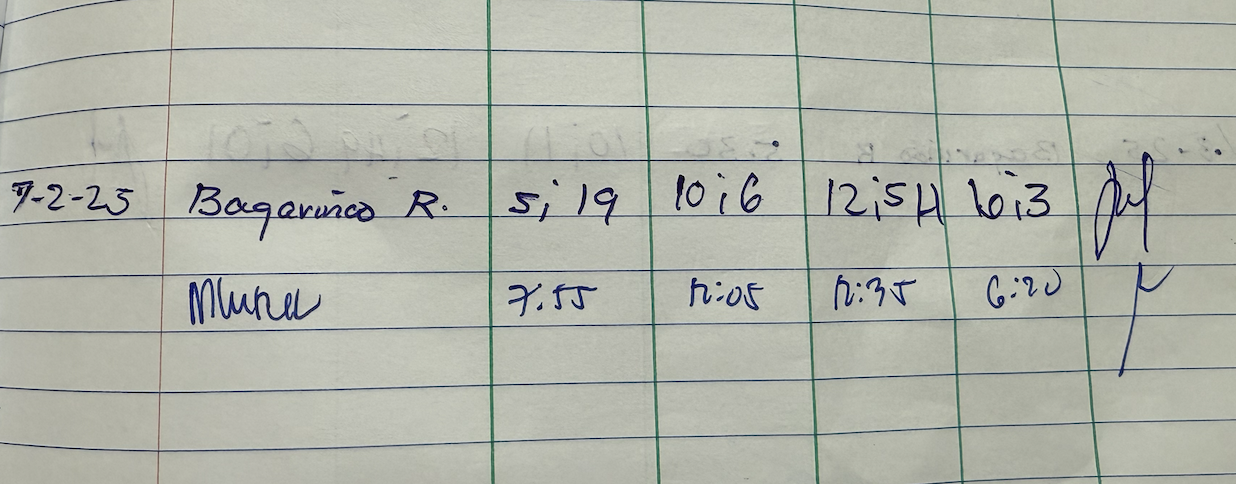 7-2-25 Bagarinao R. 5;19 10;6 12;54 6;3
7:55 12:05 12:35 6:20